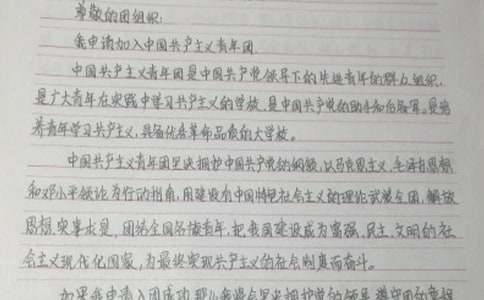 尊敬的团组织:
我申请加入中国共产主义青年团.
中国共产主义青年团是中国共产党领导下的先进青年的群众组织,
是广大青年在实践中学习共产主义的学校,是中国共产党的助手和后备军.是培
养青年学习共产主义,具备优唐革命品质的大学校。
中国共产主义青年团坚决拥护中国共产党的纲领,以马克思主义,毛泽东思想
和邓小平理论为行动指南,用建设有中国特色社会主义的理论武装全团,解放
思想.实事求是,团结全国各族青年,把我国建设成为富强,民主,文明的社
会主义现代化国家,为最终实现共产主义的社会制度而奋斗。
如果我申请入团成功,那么我将会坚决拥护党的领导,遵守团的章程